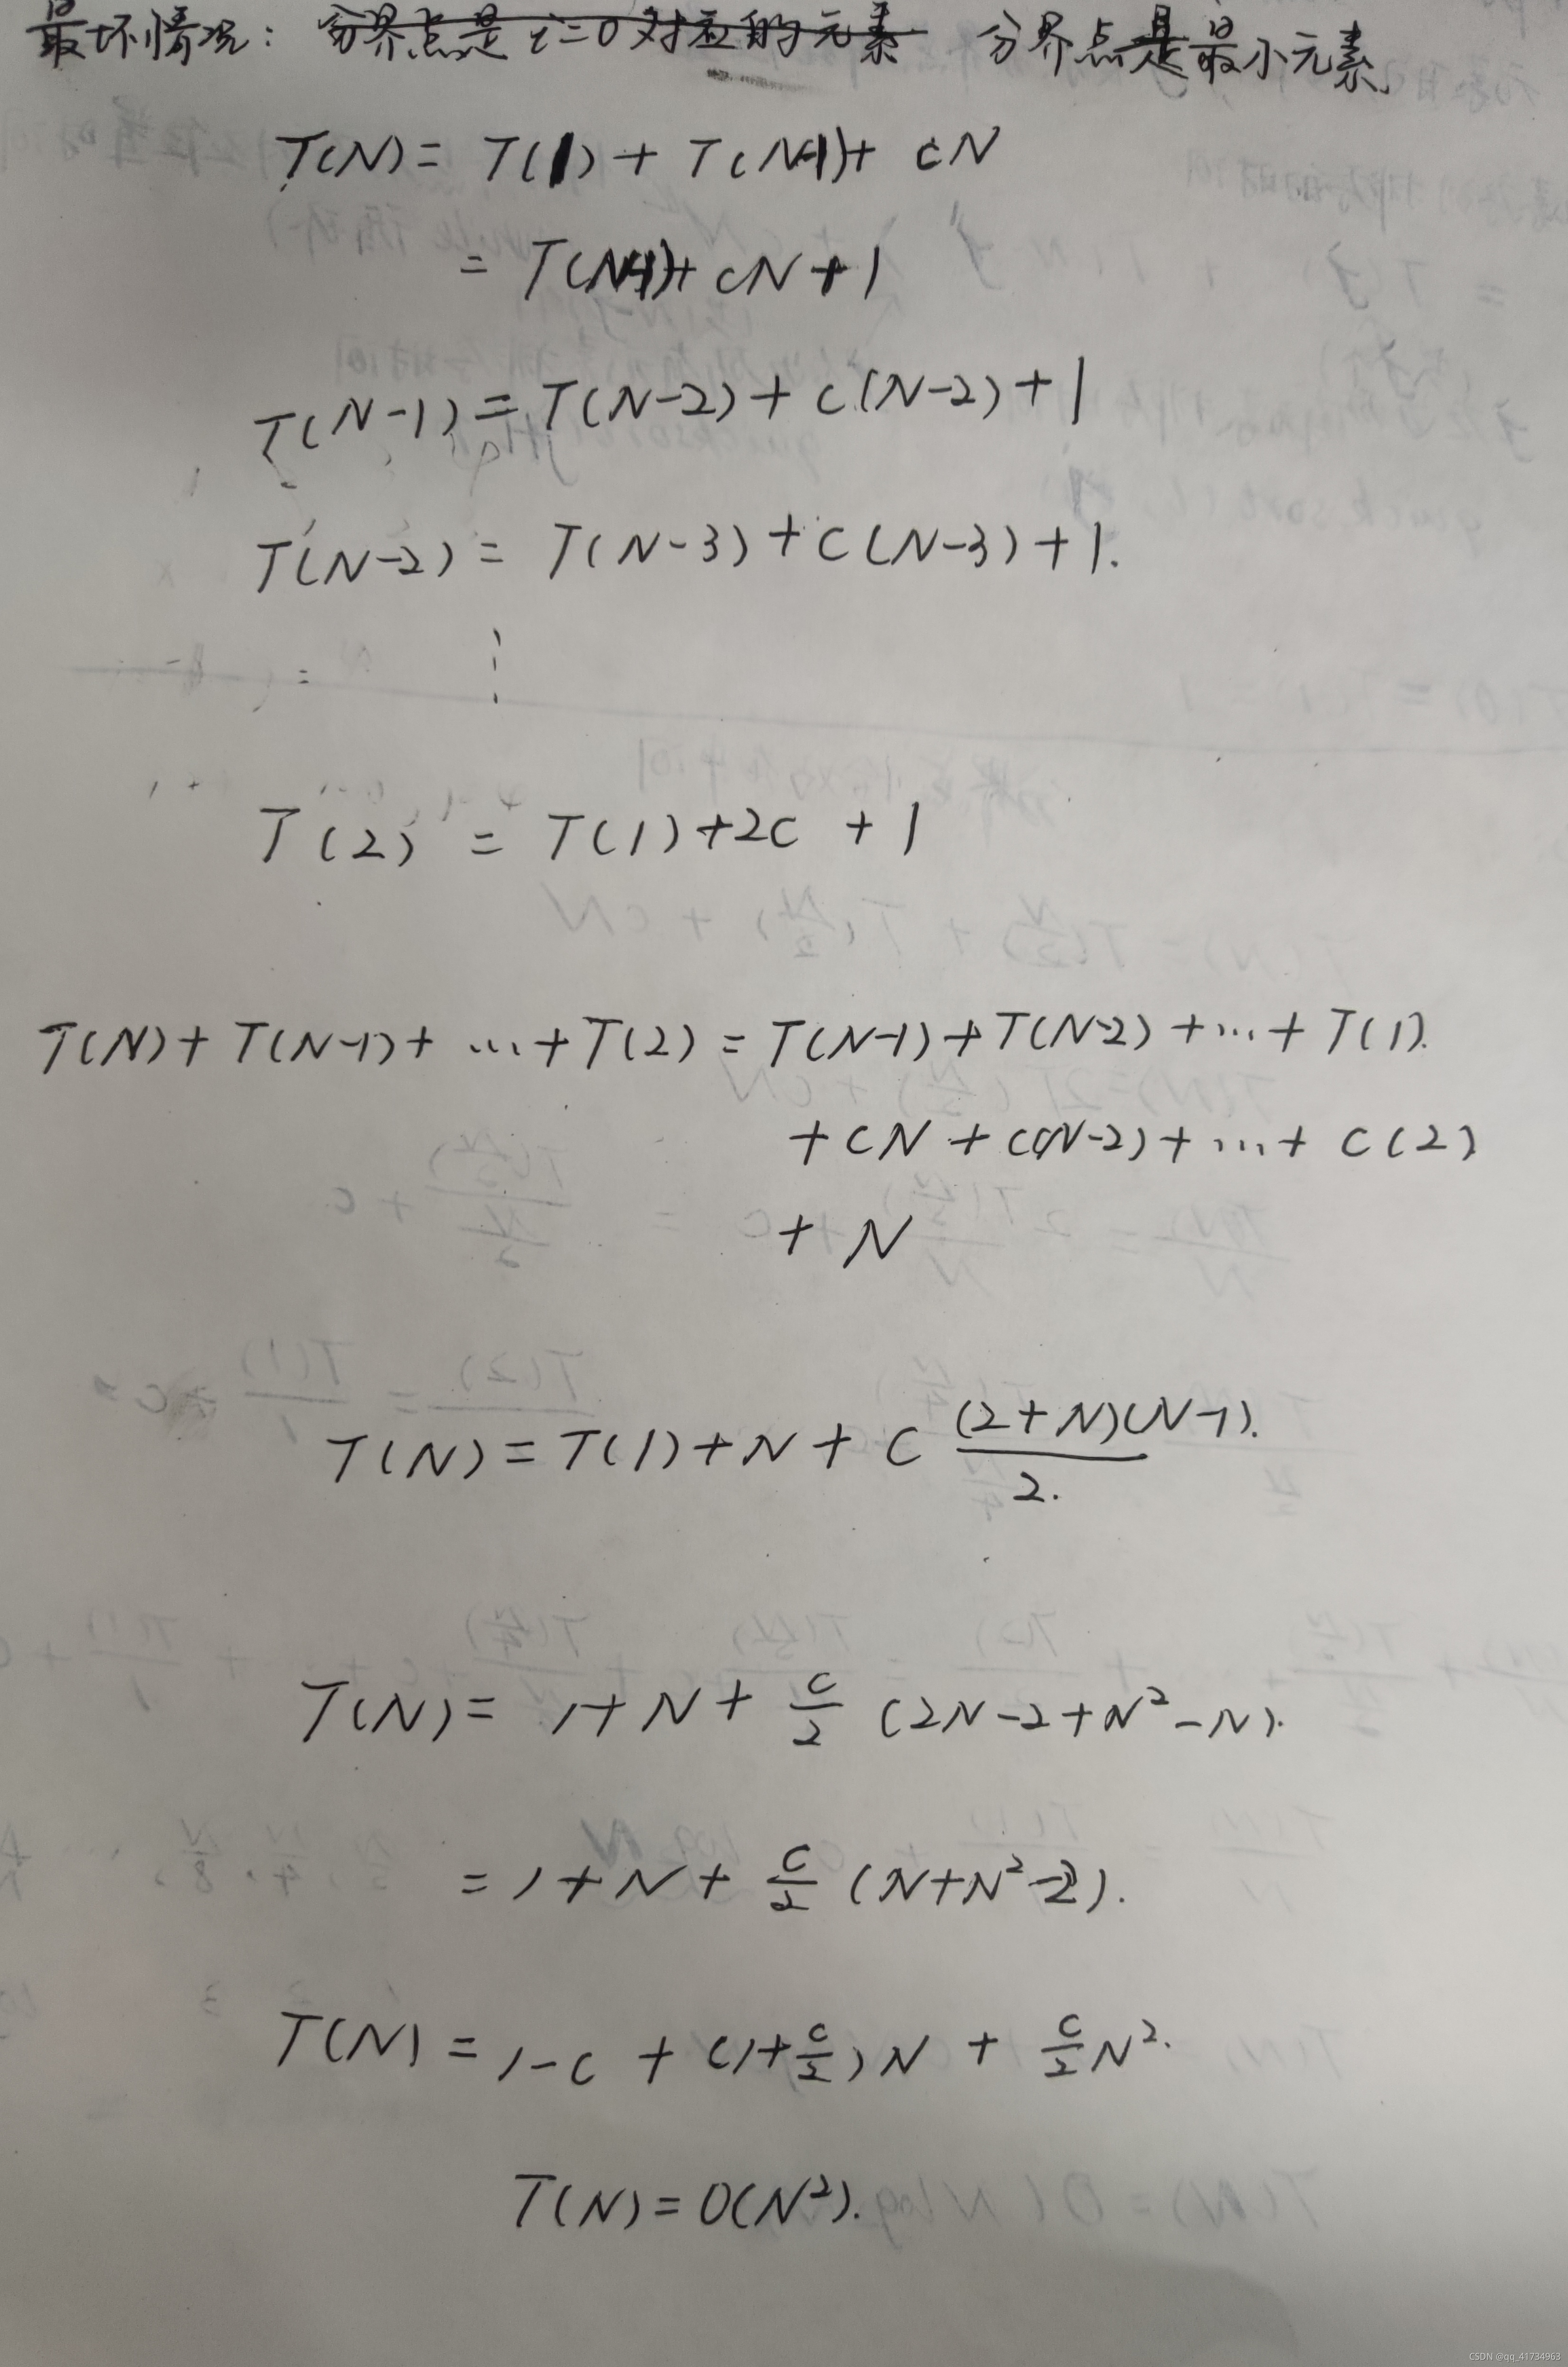 最坏情况: 分界点是 i=0 对应的元素 分界点是最小元素
T(N) = T(1) + T(N-1) + cN
= T(N-1) + cN + 1
T(N-1) = T(N-2) + c(N-2) + 1
T(N-2) = T(N-3) + c(N-3) + 1.
⋮
T(2) = T(1) + 2c + 1
T(N) + T(N-1) + ... + T(2) = T(N-1) + T(N-2) + ... + T(1).
+ cN + c(N-2) + ... + c(2)
+ N
T(N) = T(1) + N + c (2+N)(N-1)/2.
T(N) = 1 + N + c/2 (2N-2+N²-N).
= 1 + N + c/2 (N+N²-2).
T(N) = 1-c + (1+c/2)N + c/2 N².
T(N) = O(N²).
CSDN @qq_41734963